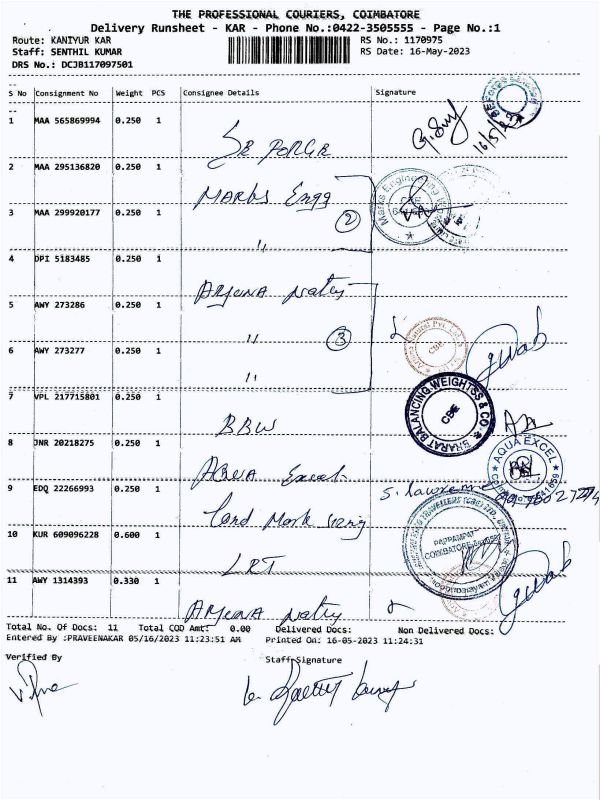 THE PROFESSIONAL COURIERS, COIMBATORE
Delivery Runsheet - KAR - Phone No.:0422-3505555 - Page No.:1
Route: KANIYUR KAR
RS No.: 1170975
Staff: SENTHIL KUMAR
RS Date: 16-May-2023
DRS No.: DCJB117097501
S No Consignment No Weight PCS Consignee Details Signature
1 MAA 565869994 0.250 1
16/5/23
2 MAA 295136820 0.250 1
MARBS Engg
3 MAA 299920177 0.250 1
②
"
4 DPI 5183485 0.250 1
ARJUNA
5 AWY 273286 0.250 1
"
③
6 AWY 273277 0.250 1
"
7 VPL 217715801 0.250 1
BHARAT BALANCING WEIGHTSS & CO
CBE
BBW
8 JNR 20218275 0.250 1
AQUA EXCEL
AQUA Excel
9 EDQ 22266993 0.250 1
S. Lawrence
Land Mark
10 KUR 609096228 0.600 1
PAPPAMPATTI
COIMBATORE
LRT
11 AWY 1314393 0.330 1
ARJUNA
Total No. Of Docs: 11 Total COD Amt: 0.00 Delivered Docs: Non Delivered Docs:
Entered By :PRAVEENAKAR 05/16/2023 11:23:51 AM Printed On: 16-05-2023 11:24:31
Verified By
Staff Signature